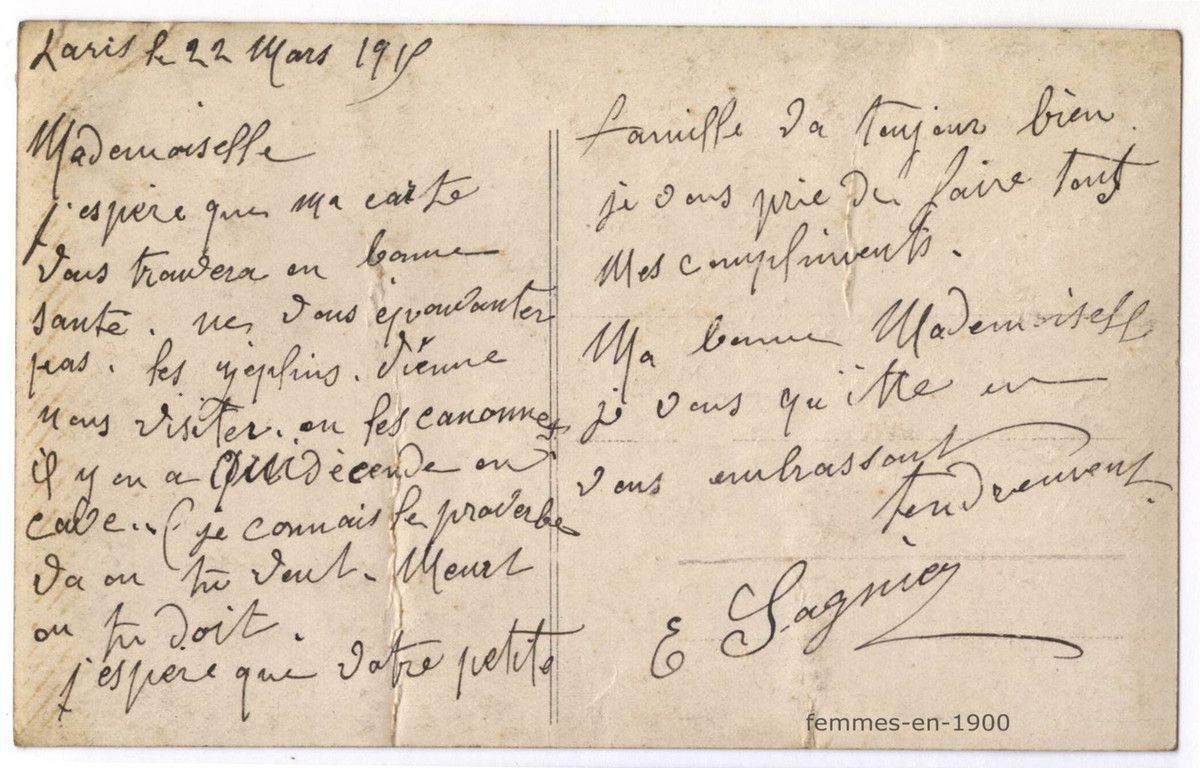 Paris le 22 Mars 1915
Mademoiselle
j'espère que ma carte
vous trouvera en bonne
santé. ne vous épouvanter
pas. les zéplins. vienne
nous visiter. on les canonne
il y en a QUI décende en
cave.. (je connais le proverbe
va ou tu veut. Meurt
ou tu doit.
j'espère que votre petite
famille va toujour bien.
je vous prie de faire tout
mes compliments.
Ma bonne Mademoiselle
je vous quitte en
vous embrassant
tendrement.
E Sagnier
femmes-en-1900